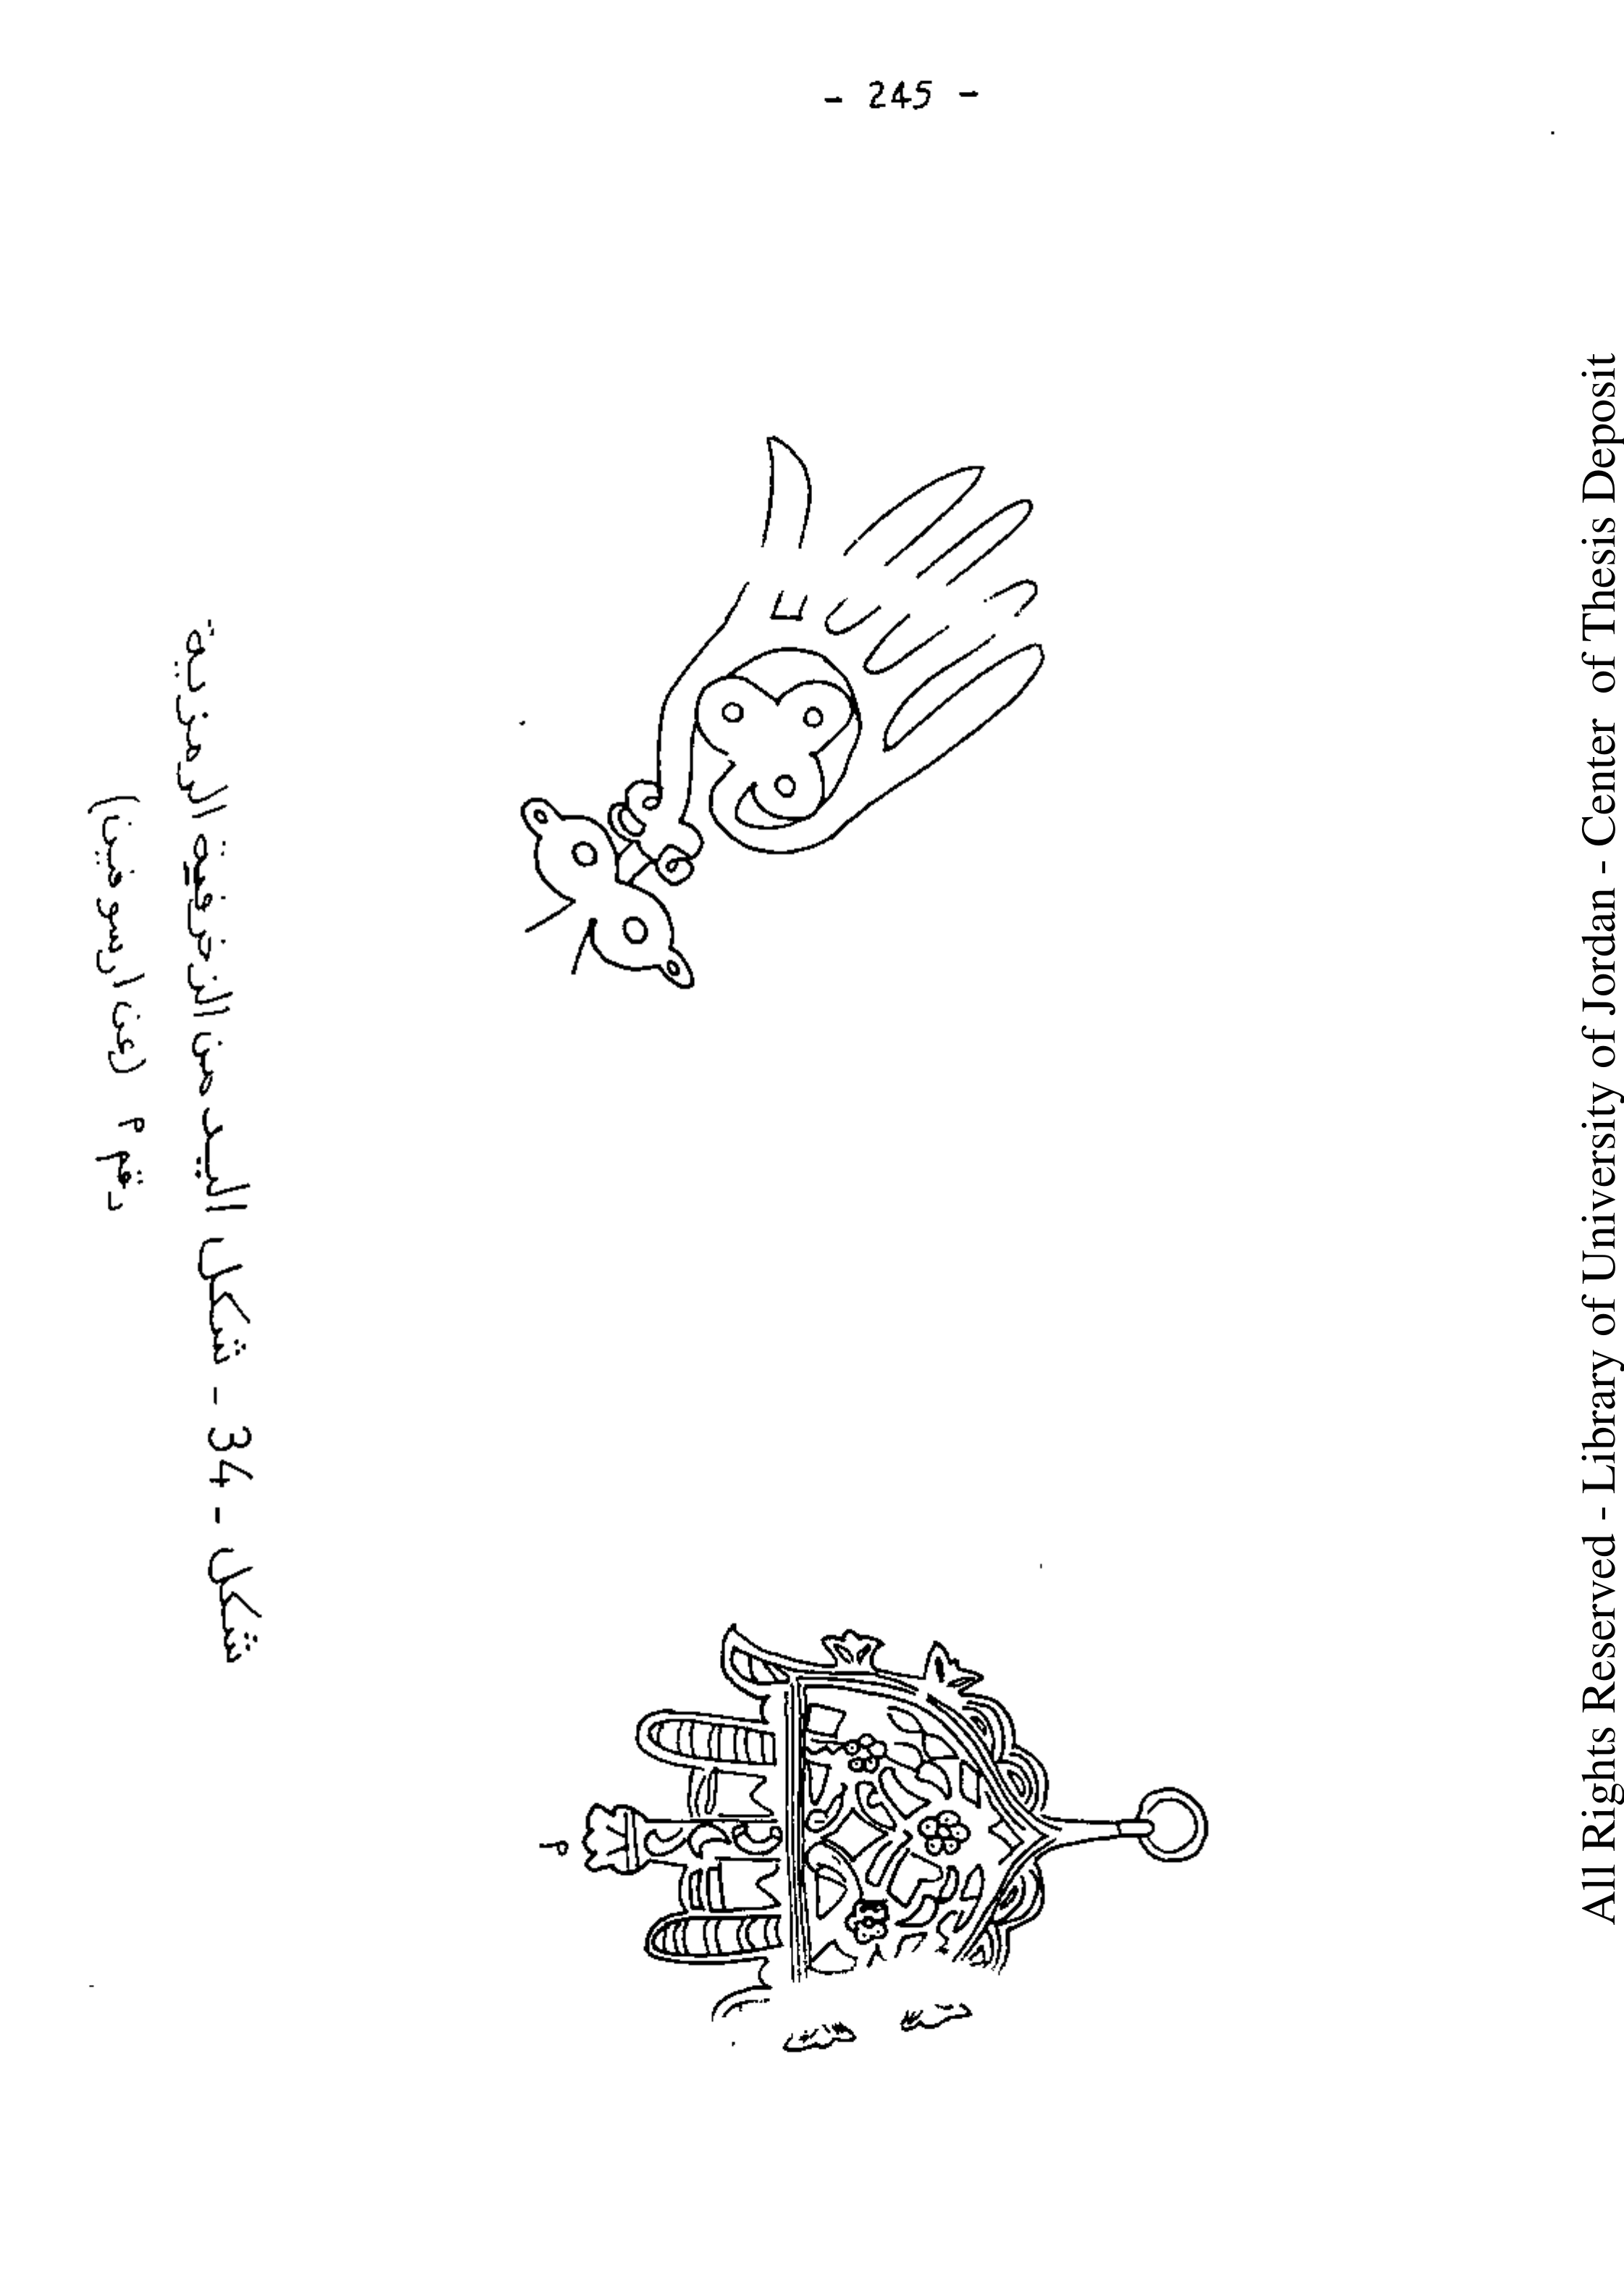 - 245 -
م
شكل - 34 - شكل اليد من الزخرفية الرمزية
رقم م (عن اوسوفين)
All Rights Reserved - Library of University of Jordan - Center of Thesis Deposit